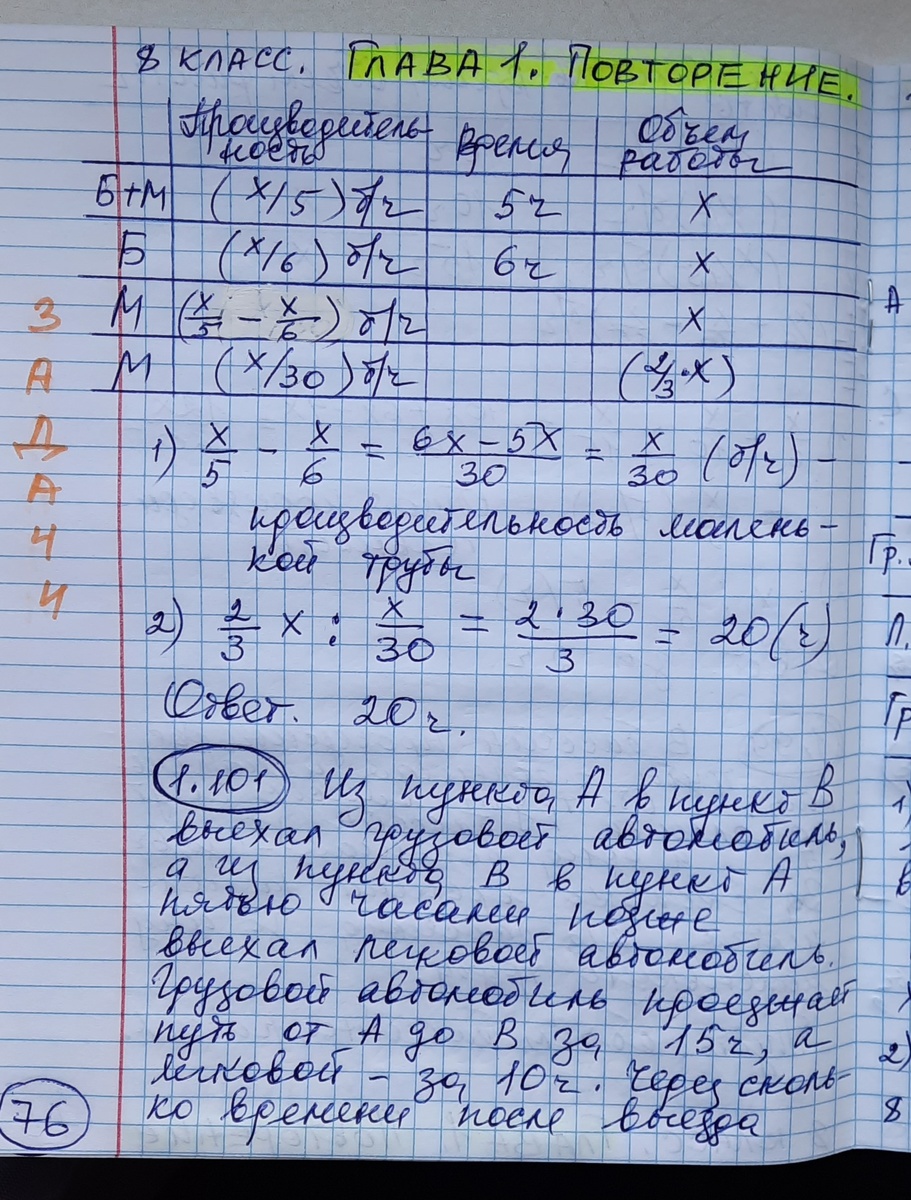 8 КЛАСС. ГЛАВА 1. ПОВТОРЕНИЕ.
Производитель-
ность
Время
Объем
работы
Б+М (x/5) б/ч 5ч x
Б (x/6) б/ч 6ч x
М (x/5 - x/6) б/ч x
М (x/30) б/ч (2/3·x)
ЗАДАЧИ
1) x/5 - x/6 = 6x-5x/30 = x/30 (б/ч) -
производительность малень-
кой трубы
2) 2/3 x : x/30 = 2·30/3 = 20(ч)
Ответ. 20ч.
1.101 Из пункта А в пункт В
выехал грузовой автомобиль,
а из пункта В в пункт А
пятью часами позже
выехал легковой автомобиль.
Грузовой автомобиль проезжает
путь от А до В за 15ч, а
легковой - за 10ч. Через сколь-
ко времени после выезда
76
А
Гр.
Л.
Гр
1)
в
2)
8